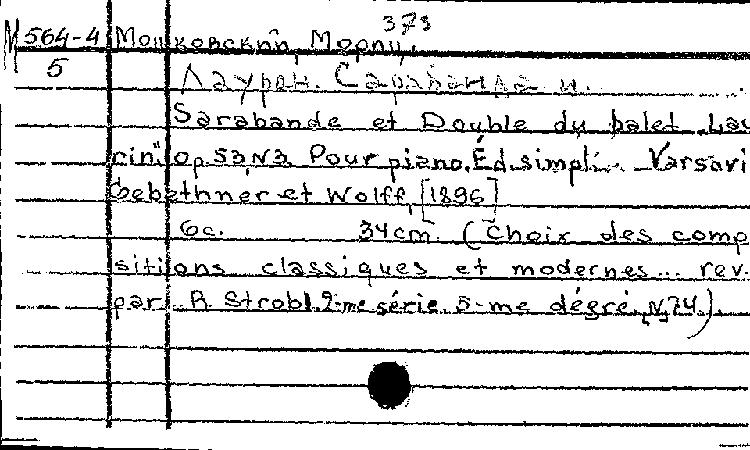 373
М 564-4 Мошковский, Мориц.
5
Лаурен. Сарабанда и.
Sarabande et Double du balet "Lau
rin" op. Sans Pour piano. Éd. simpl... Varsavi
Gebethner et Wolff, [1896]
6c. 34cm. (Choix des comp
sitions classiques et modernes... rev.
par R Strobl. 2-me série. 5-me dégré. N 74).